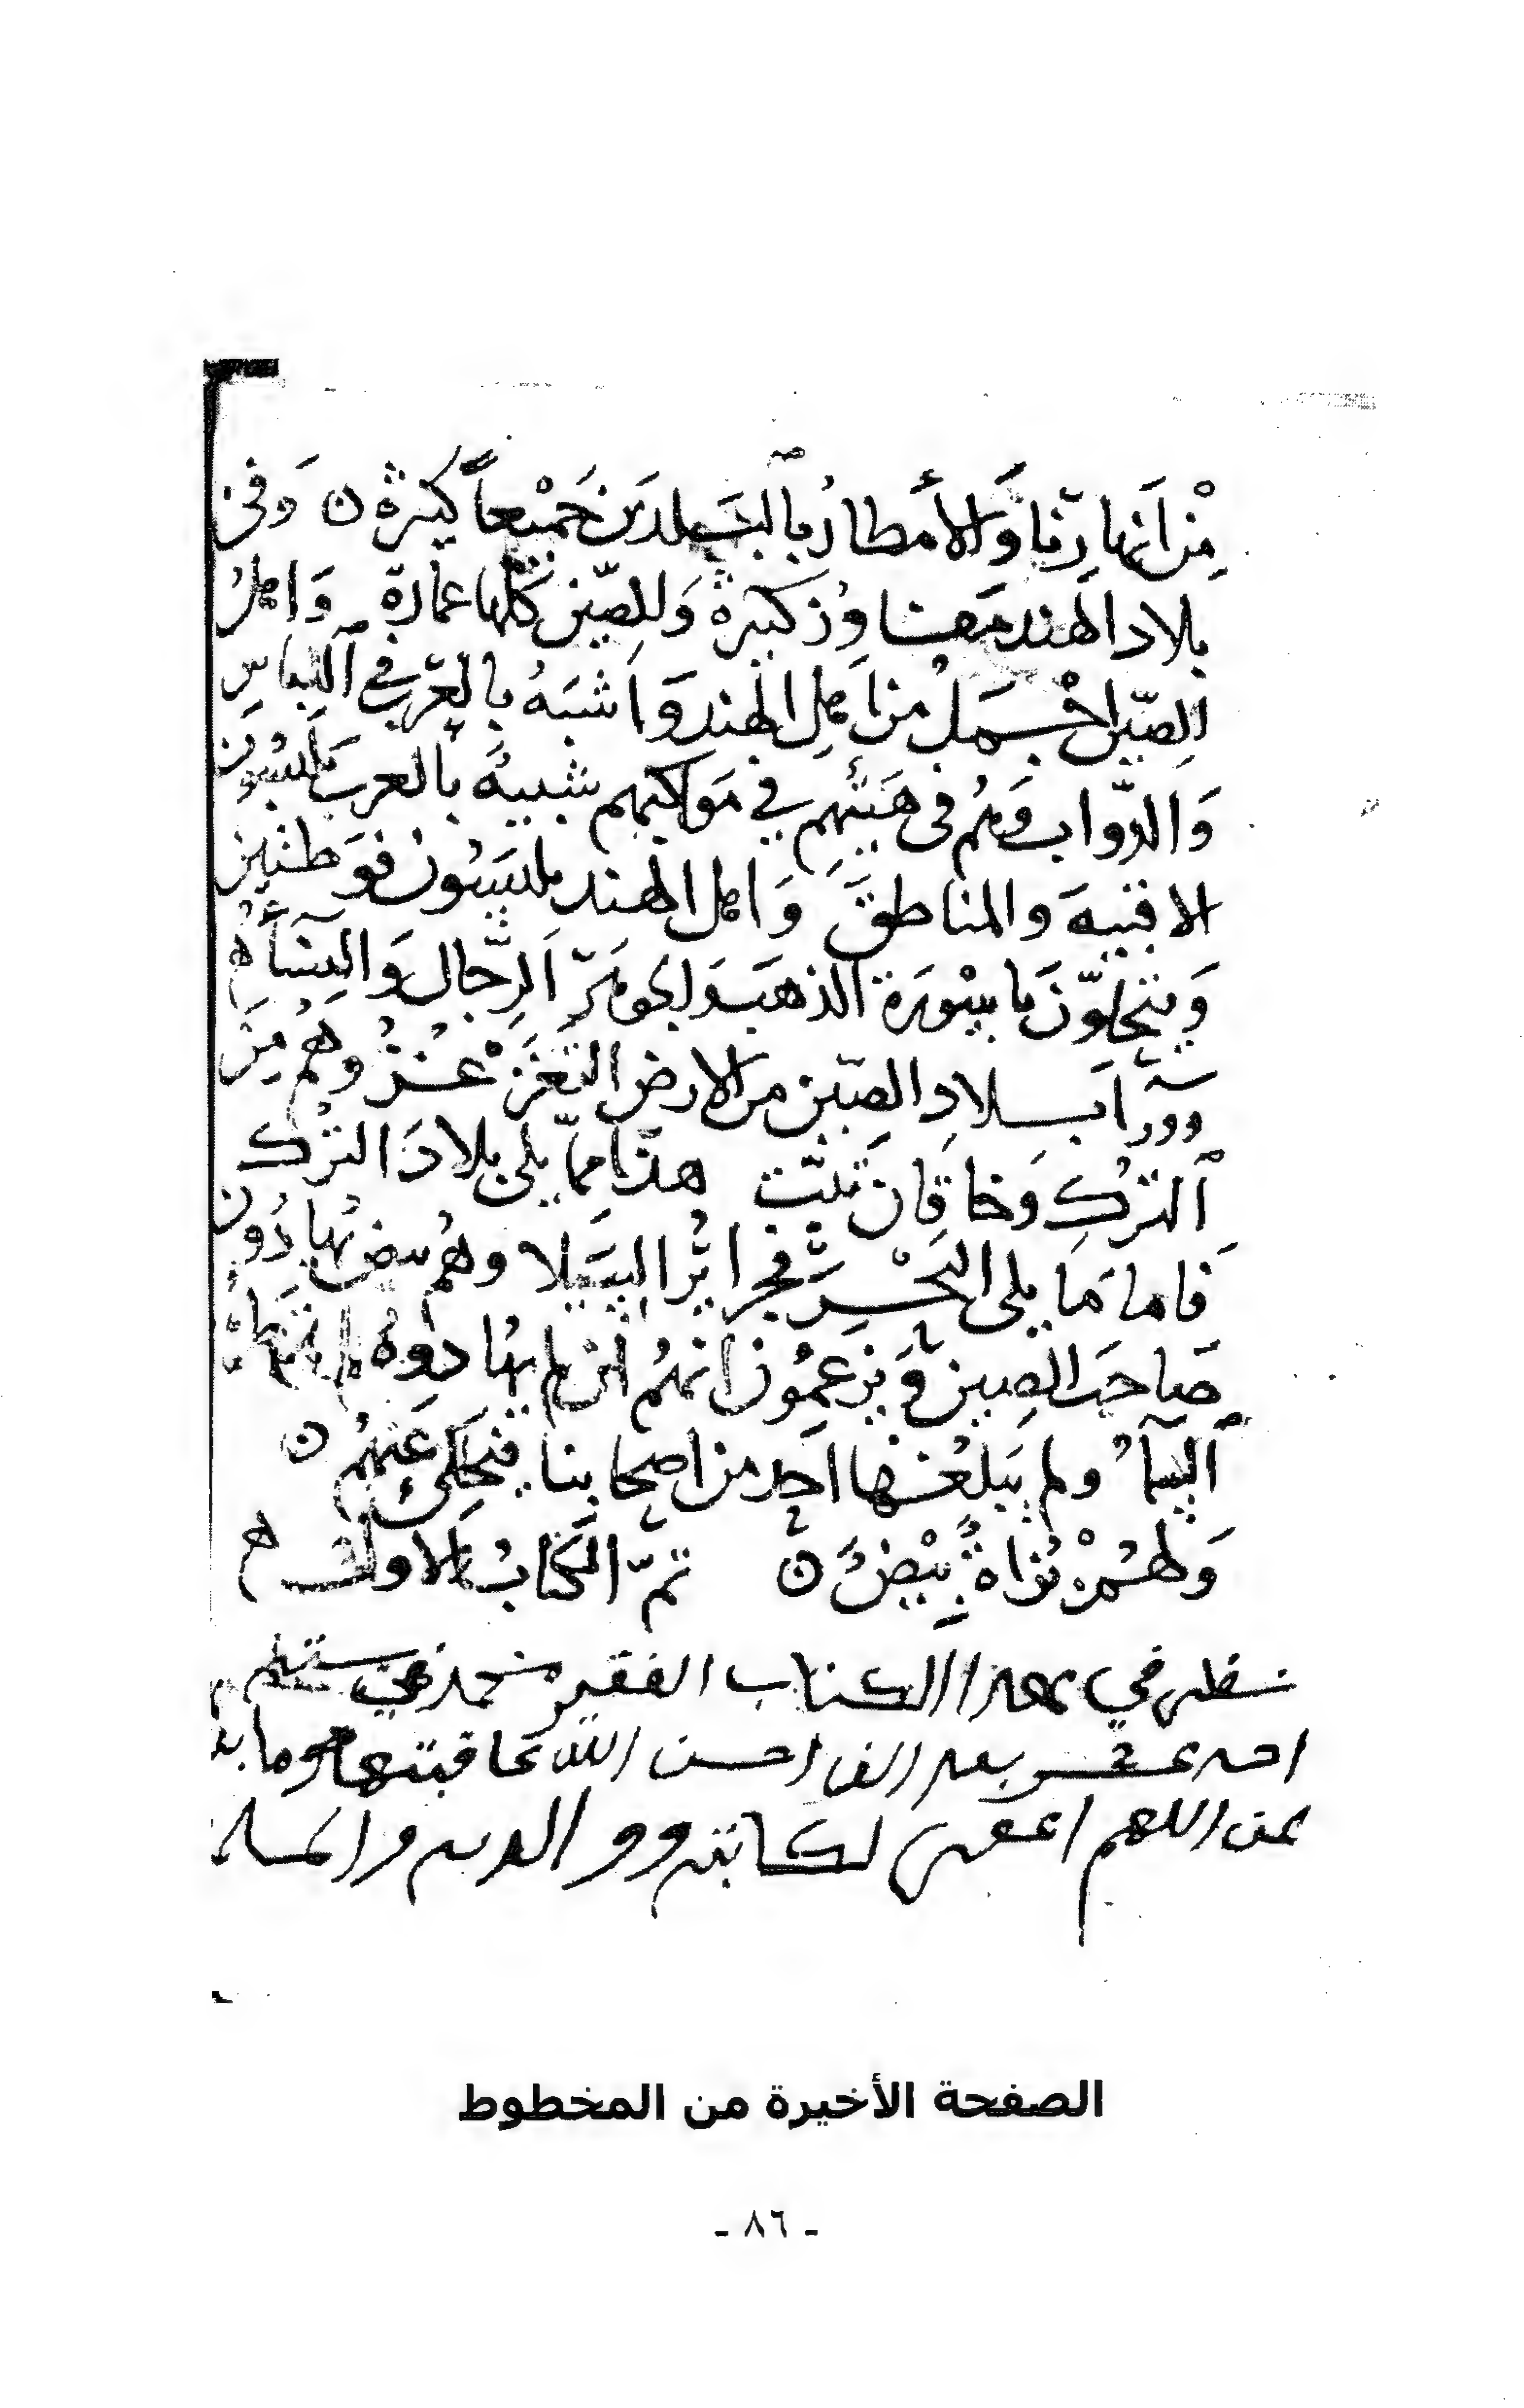 مِنْ اَنهارِنَا وَالأَمطارُ بالبَلدَينِ جَمْيعاً كثيرة ن وَفي
بلاد الهند مَفَاوز كثيرة وَالصّين كلها عمارة وَاهلُ
الصّين اجْمَلُ من اهلِ الهند وَاشبَهُ بالعَربِ في اللباسِ
وَالدّواب وَهُم في هَيْئتهم في مَواكبهم شبيهٌ بالعرب يَلبسُونَ
الاقبيةَ والمناطقَ وَاهل الهند يلبسُون فوَطتين
وَيتحلوّنَ باسْوِرَة الذهبَ وَالجوهَر الرّجال وَالنِّسَآءُ ه
وورآ بلادِ الصّين من الارض التغزغز وهُم مِنَ
التركِ وَخاقان تُبّت هذا مِمّا يلي بلادَ التُرك
فاما مَا يلي البَحْرَ فجزائرُ السيلا وهُم بيض يُهادُون
صَاحبَ الصين وَيزعمُون انهُم ان لم يُهادوهُ لم تمطرْهُم
السّمآءُ ولم يَبلغْها احَد من اصحابنا فيَحكيَ عَنهُم ن
وَلهُمْ بُزاةٌ بِيْضٌ ن تمّ الكتابُ الاول ه
نظر في هذا الكتاب الفقير محمد في سنة
احد عشر بعد الف احسن الله عاقبتها وما بعد
اللهم اغفر لكاتبه ووالديه والمسلمـ
الصفحة الأخيرة من المخطوط
- ٨٦ -